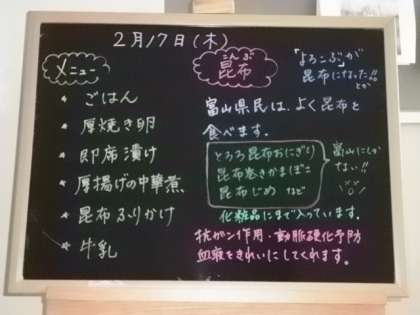 2月17日(木)
メニュー
ごはん
厚焼き卵
即席漬け
厚揚げの中華煮
昆布ふりかけ
牛乳
こんぶ
昆布
「よろこぶ」が
昆布になった!!
とか
富山県民は、よく昆布を
食べます。
とろろ昆布おにぎり
昆布巻きかまぼこ
昆布じめ など
富山にしか
ない!!
化粧品にまで入っています。
抗がん作用・動脈硬化予防
血液をきれいにしてくれます。